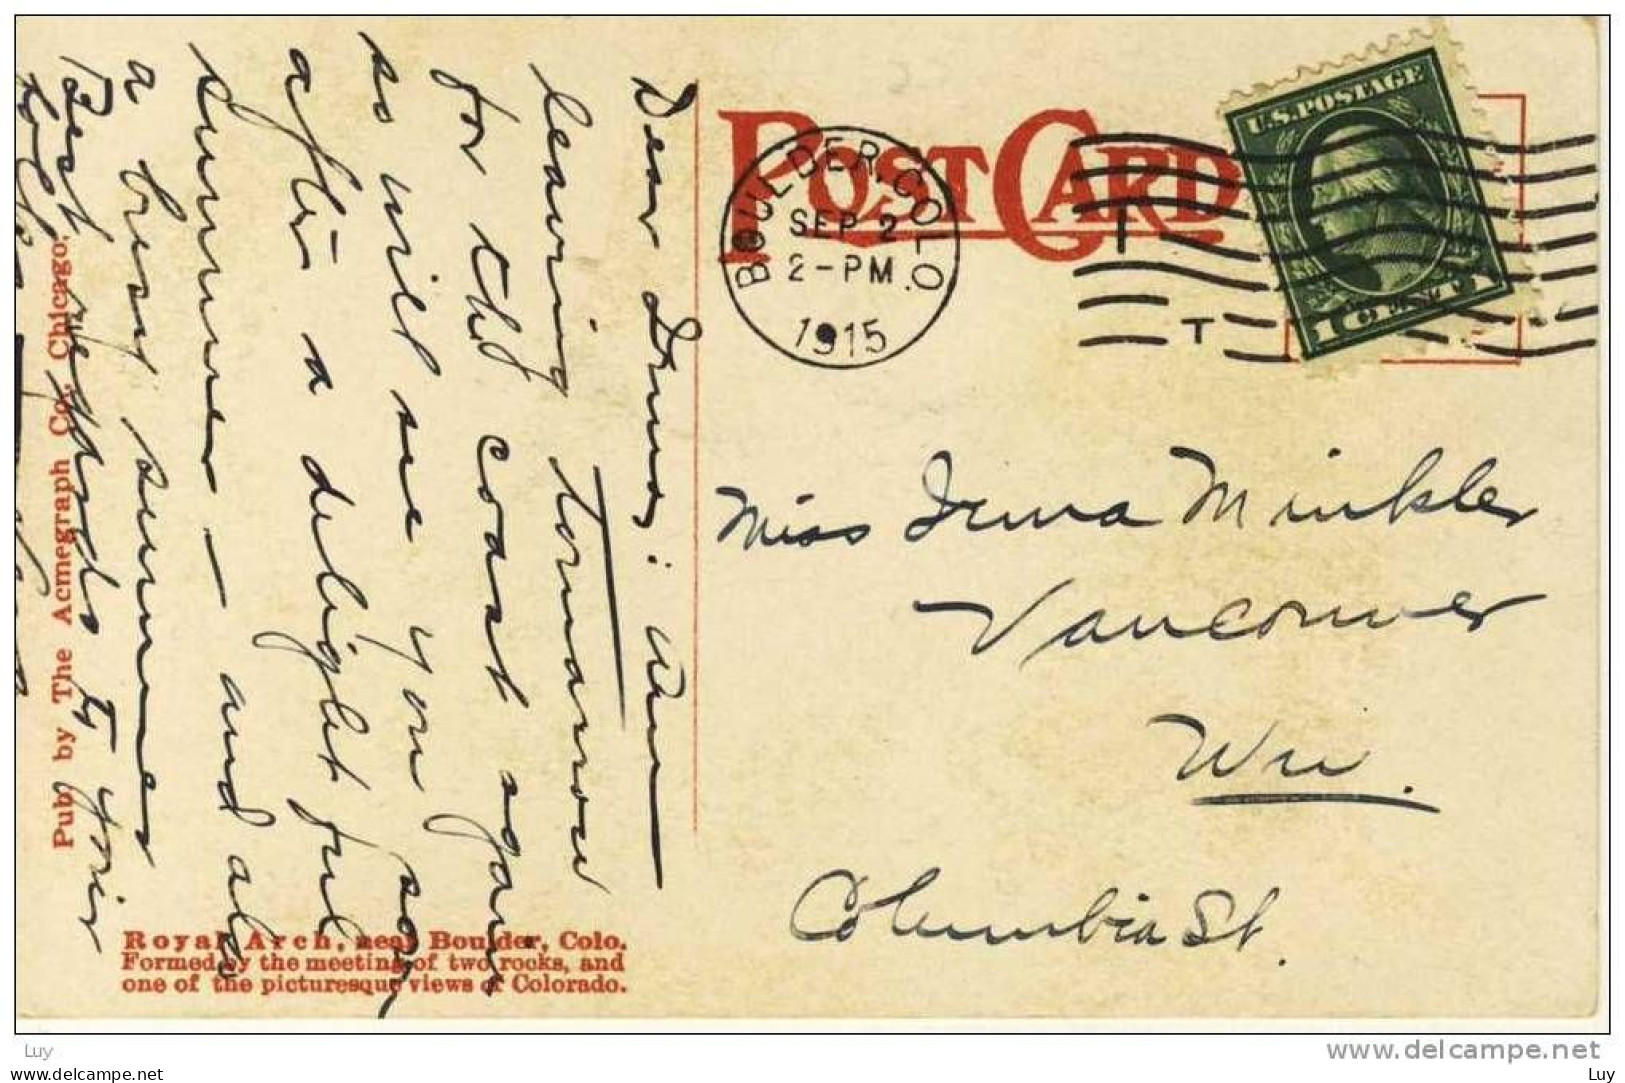 POST CARD
BOULDER, COLO.
SEP 2
2-PM
1915
T
U.S. POSTAGE
1 CENT 1
Miss Irma Minkler
Vancouver
Wn.
Columbia St.
Dear Irma: Am
leaving tomorrow
for the coast again
so will see you soon
after a delightful
summer - and also
a busy summer
Best regards to your
Pub. by The Acmegraph Co., Chicago.
Royal Arch, near Boulder, Colo.
Formed by the meeting of two rocks, and
one of the picturesque views of Colorado.
Luy
www.delcampe.net
luy.ancenne.com
Luy